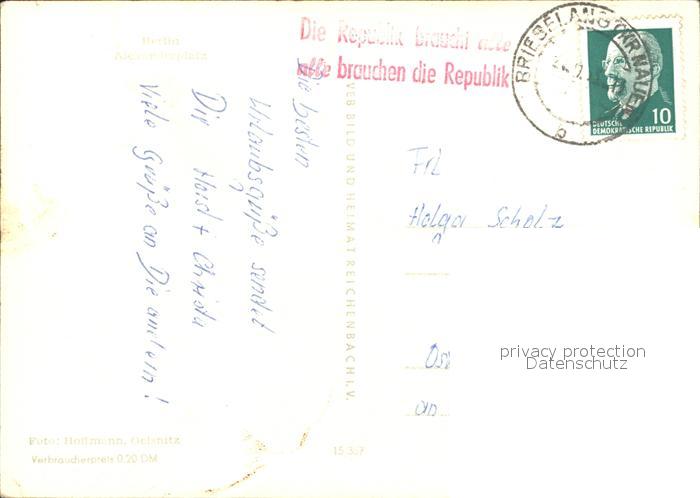 Berlin
Alexanderplatz
Die Republik braucht alle
alle brauchen die Republik
BRIESELANG (KR NAUEN)
b
10
DEUTSCHE
DEMOKRATISCHE REPUBLIK
Die besten
Urlaubsgrüße sendet
Dir Horst + Christa
Viele Grüße an Die andern!
VEB BILD UND HEIMAT REICHENBACH I. V.
Frl
Helga Scholz
privacy protection
Datenschutz
Foto: Hoffmann, Oelsnitz
Verbraucherpreis 0,20 DM